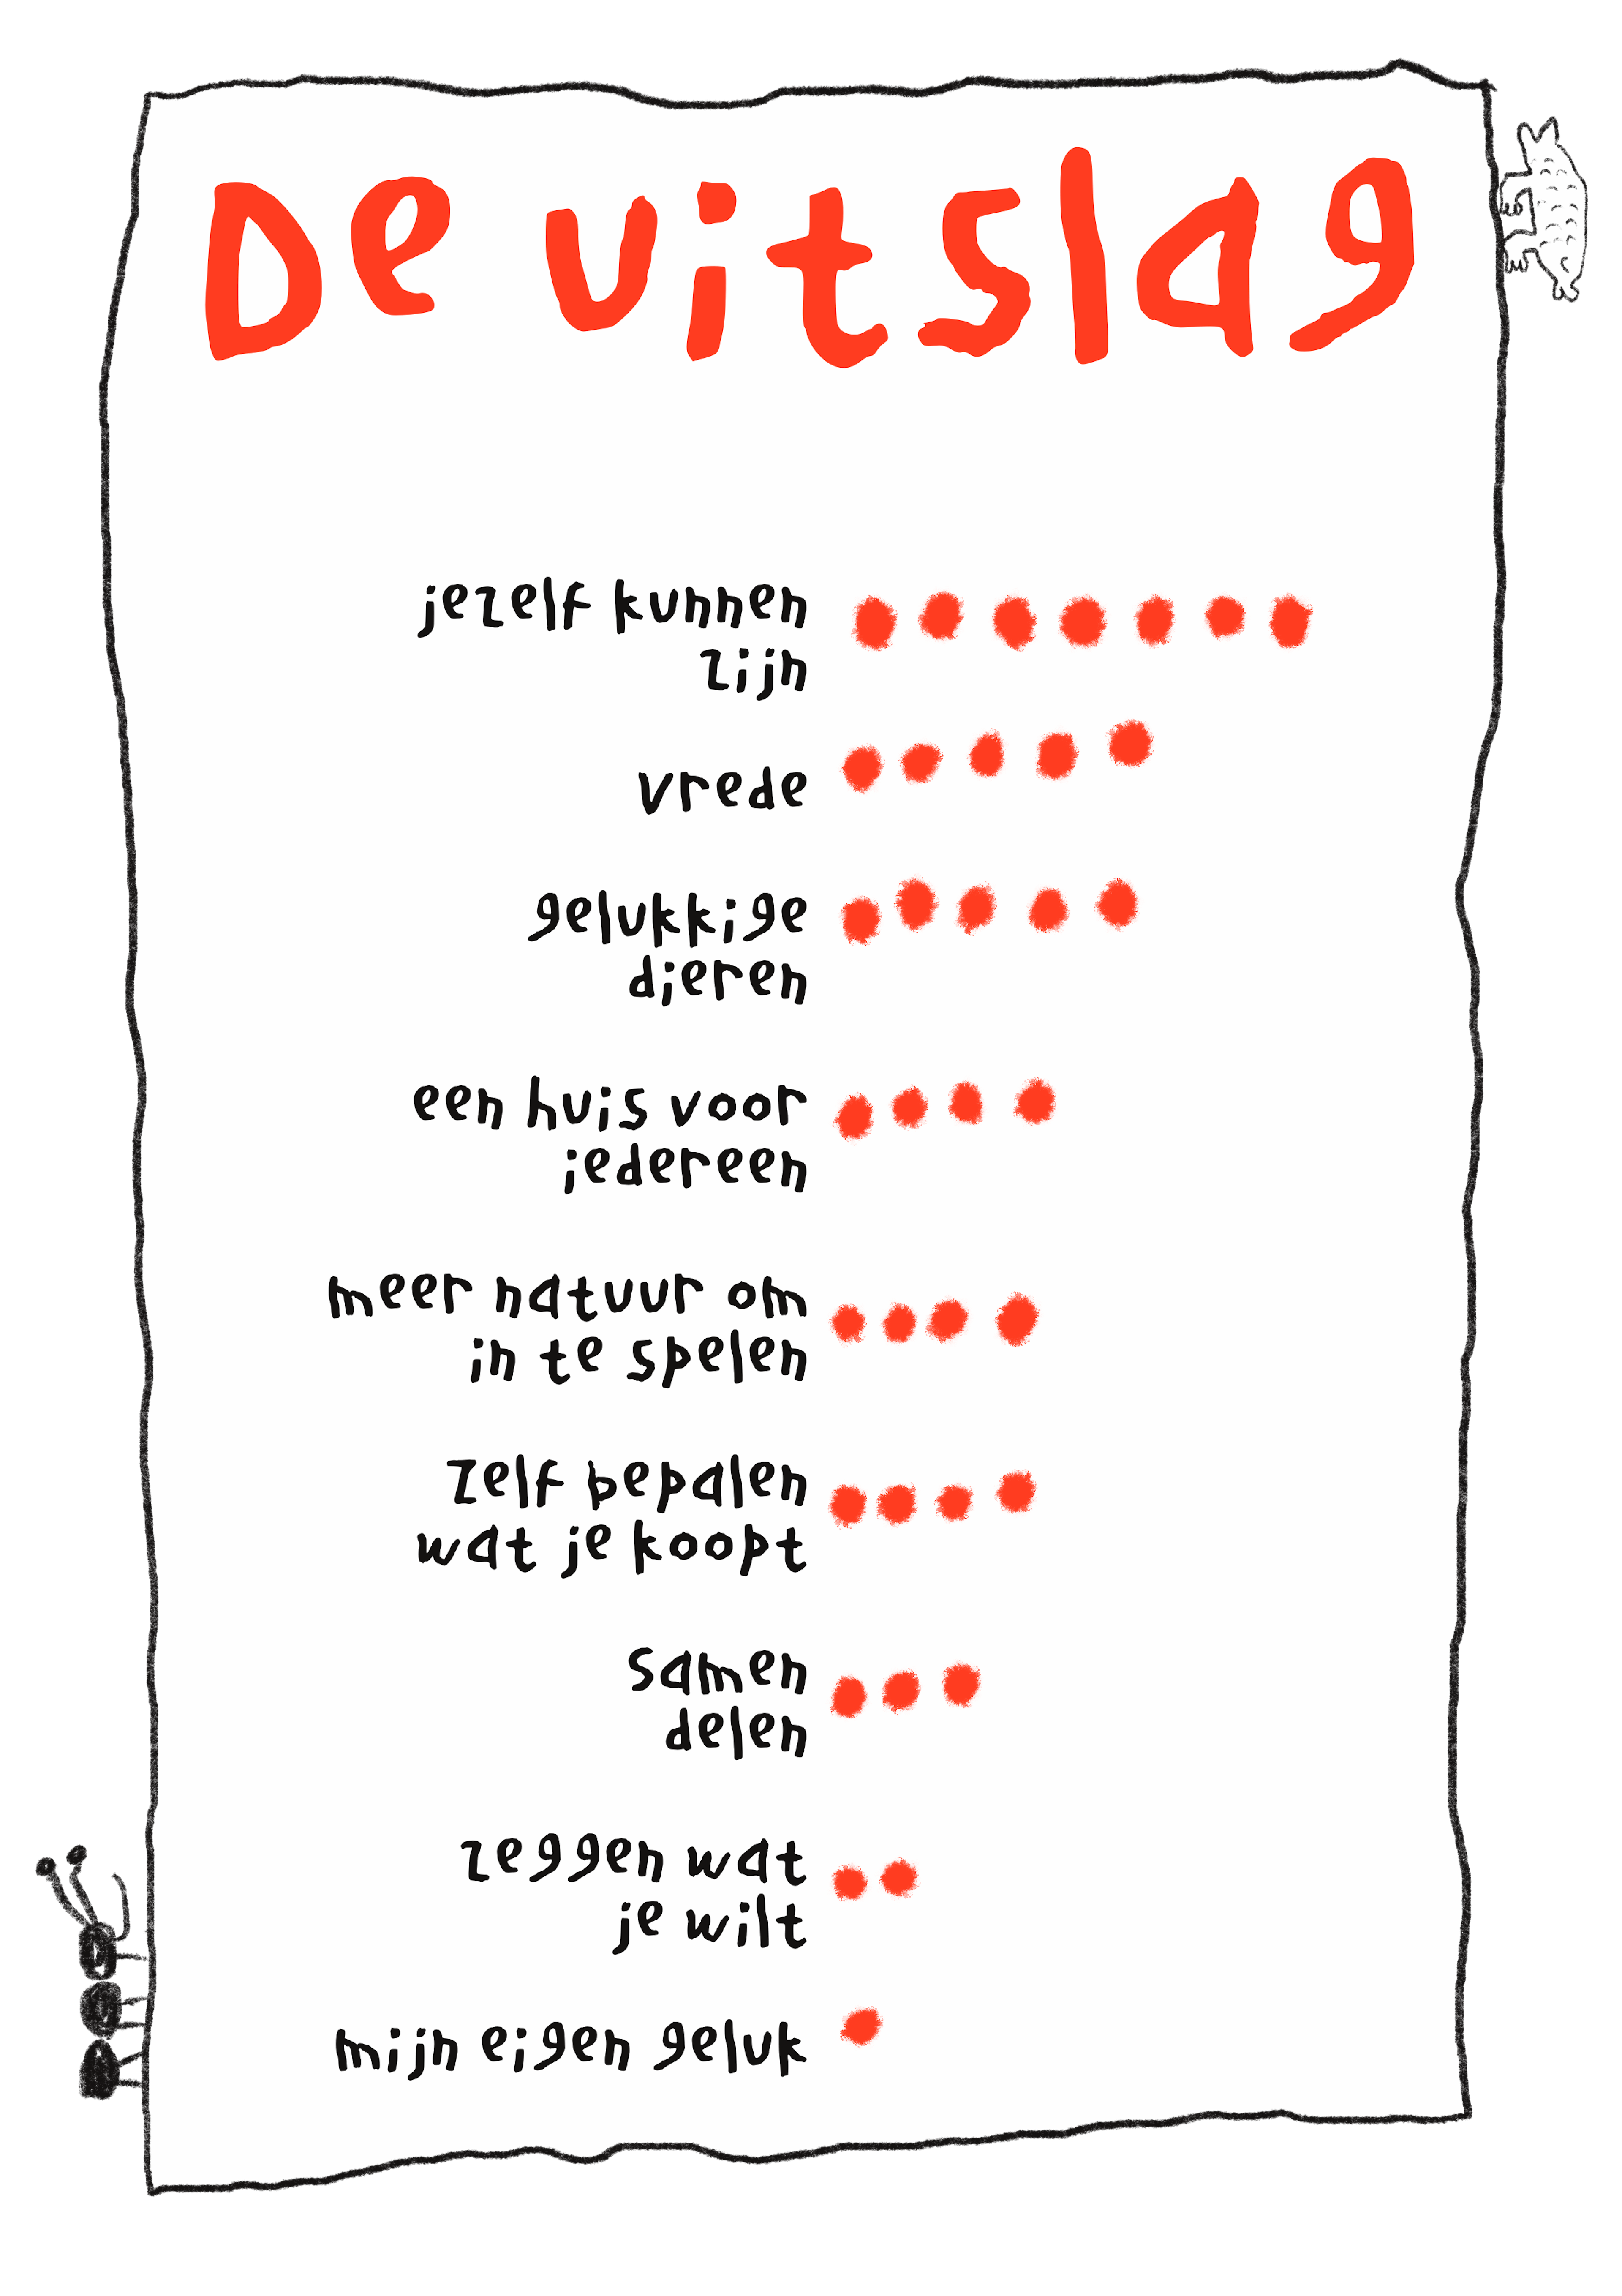 De uitslag
jezelf kunnen
zijn
vrede
gelukkige
dieren
een huis voor
iedereen
meer natuur om
in te spelen
Zelf bepalen
wat je koopt
samen
delen
zeggen wat
je wilt
mijn eigen geluk